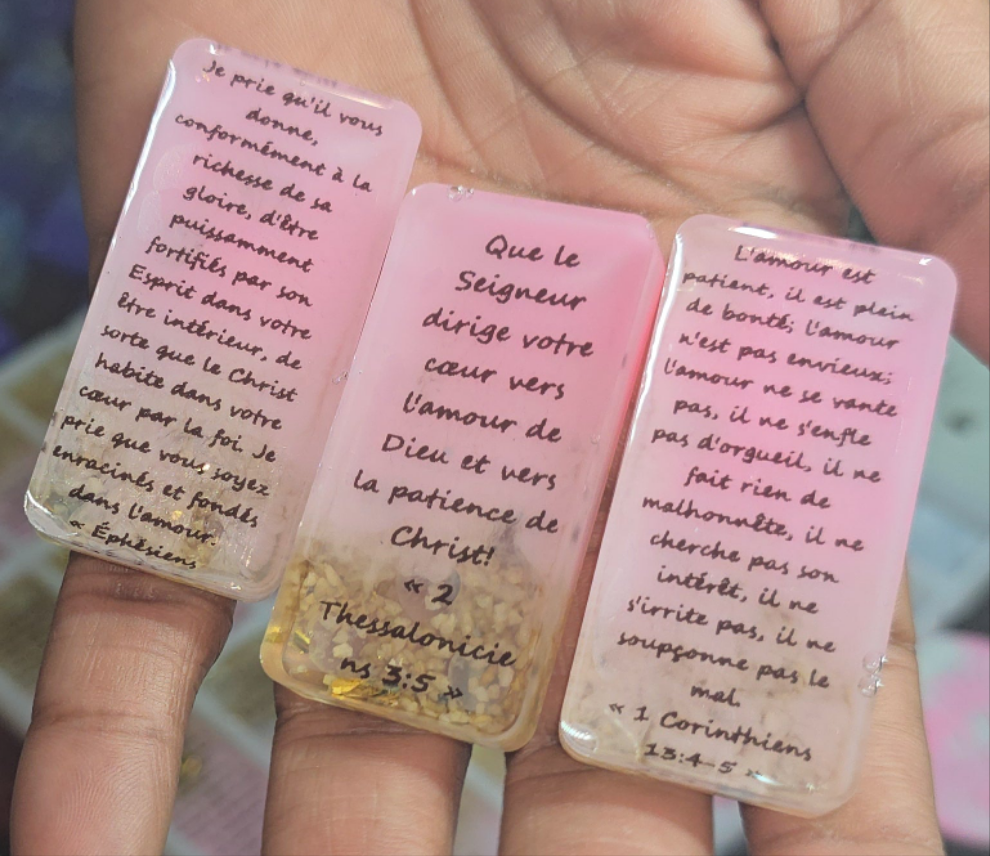 Je prie qu'il vous
donne,
conformément à la
richesse de sa
gloire, d'être
puissamment
fortifiés par son
Esprit dans votre
être intérieur, de
sorte que le Christ
habite dans votre
cœur par la foi. Je
prie que vous soyez
enracinés et fondés
dans l'amour.
« Éphésiens
Que le
Seigneur
dirige votre
cœur vers
l'amour de
Dieu et vers
la patience de
Christ!
« 2
Thessalonicie
ns 3:5 »
L'amour est
patient, il est plein
de bonté; l'amour
n'est pas envieux;
l'amour ne se vante
pas, il ne s'enfle
pas d'orgueil, il ne
fait rien de
malhonnête, il ne
cherche pas son
intérêt, il ne
s'irrite pas, il ne
soupçonne pas le
mal,
« 1 Corinthiens
13:4-5 »